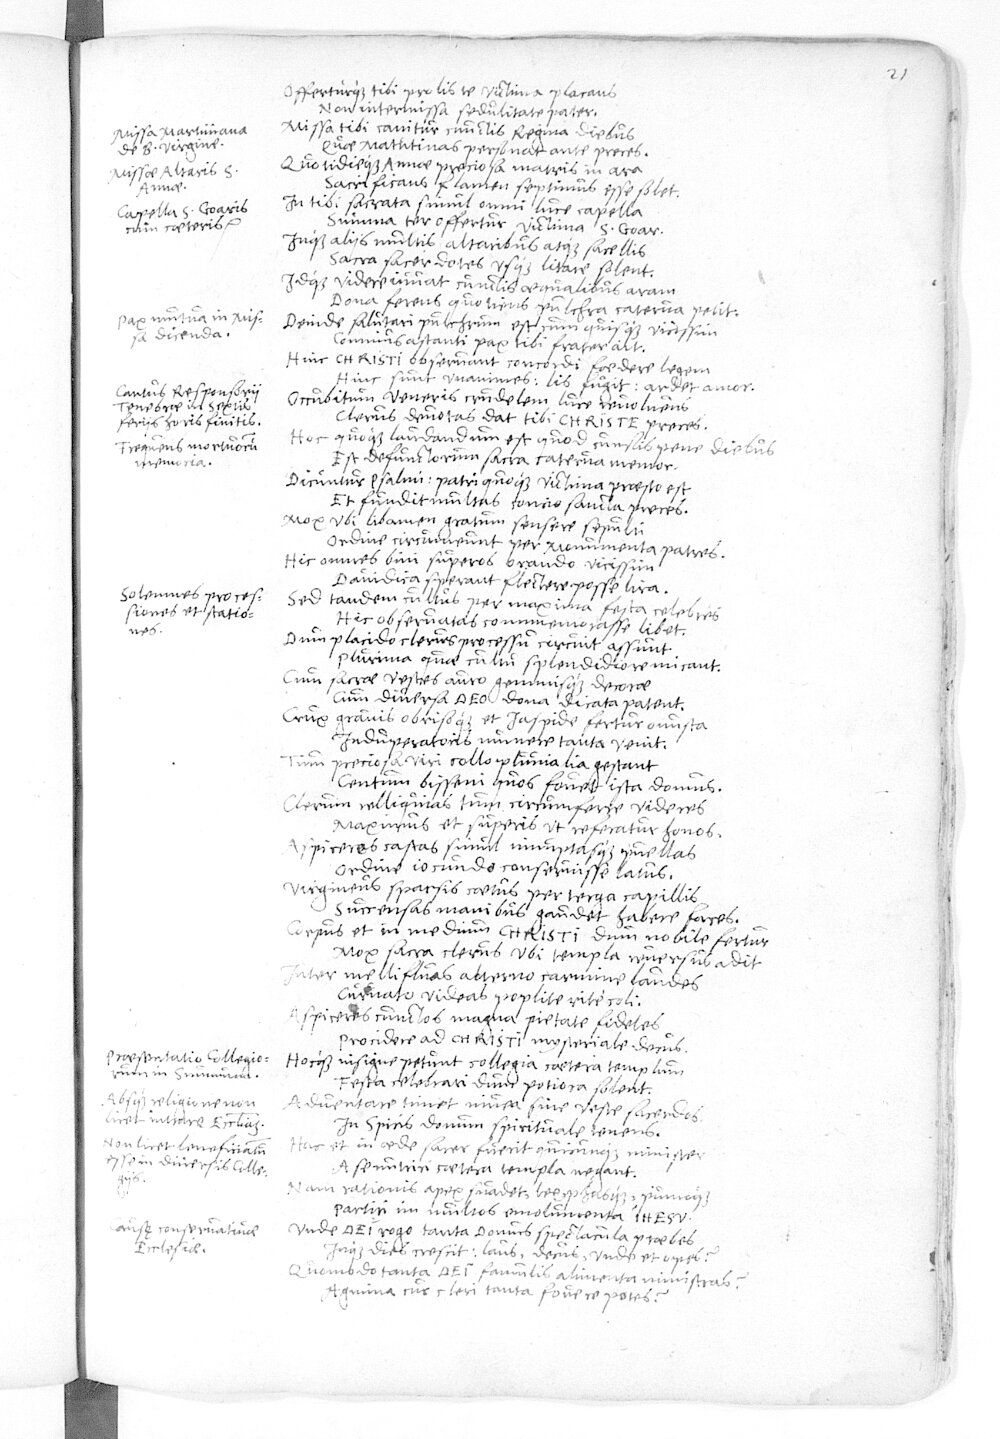 21
Offerturq́; tibi pro lis te victima placans
Non intermissa sedulitate pater.
Missa Martiniana
de B. Virgine.
Missa tibi canitur cunctis Regina diebus
Quæ Matutinas personat ante preces.
Missæ Altaris S.
Annæ.
Quotidieq́; Annæ preciosa matris in ara
Sacrificans flamen septimus esse solet.
Capella S. Goaris
cum cæteris
In tibi sacrata simul omni luce capella
Summa ter offertur victima S. Goar.
Inq́; alijs multis altaribus atq́; sacellis
Sacra sacerdotes vsq́; litare solent.
Idq́; videre iuuat cunctis æqualibus aram
Dona ferens quotiens pulchra caterua petit.
Pax mutua in Mis-
sa dicenda.
Deinde salutari pulchrum est cum quisq́; vicissim
Comminus astanti pax tibi frater ait.
Hinc CHRISTI obseruant concordi foedere legem
Hinc sunt vnanimes: lis fugit: ardet amor.
Cantus Responsorij
Tenebræ in sextis
ferijs horis finitis.
Occubitum Veneris crudelem luce reuoluens
Clerus deuotas dat tibi CHRISTE preces.
Frequens mortuorũ
memoria.
Hoc quoq́; laudandum est quod cunctis pene diebus
Est defunctorum sacra caterua memor.
Dicuntur psalmi: patri quoq́; victima præsto est
Et fundit multas concio sancta preces.
Mox vbi libamen gratum sensere sepulti
Ordine circumeunt per Monumenta patres.
Hic omnes bini superos orando vicissim
Dauidica sperant flectere posse lira.
Solennes proces-
siones et statio-
nes.
Sed tandem cultus per maxima festa celebres
Hic obseruatas commemorasse libet.
Dum placido clerus processu circuit assunt
Plurima quæ cultu splendidiore micant.
Cum sacræ vestes auro gemmisq́; decoræ
Cum diuersa DEO dona dicata patent.
Crux grauis obrisoq́; et Jaspide fertur onusta
Induperatoris munere tanta venit.
Tum preciosa viri collo pluuialia gestant
Centum bisseni quos fouet ista domus.
Clerum relliquias tum circumferre videres
Maximus et superis vt referatur honos.
Aspiceres castas simul innuptasq́; puellas
Ordine iocundo conseruisse latus.
Virgineus sparsis cætus per terga capillis
Succensas manibus gaudet habere faces.
Corpus et in medium CHRISTI dum nobile fertur
Mox sacra clerus vbi templa reuersus adit
Inter mellifluas alterno carmine laudes
Curuato videas poplite rite coli.
Aspiceres cunctos magna pietate fideles
Procidere ad CHRISTI mysteriale decus.
Præsentatio Collegio-
rum in Summum.
Hocq́; insigne petunt collegia cætera templum
Festa celebrari dum potiora solent.
Absq́; religione non
licet intrare Eccliã.
Aduentare timet niuea sine veste sacerdos.
In Spiris domum spirituale tenens.
Non licet beneficiatũ
esse in diuersis Colle-
gijs.
Hac et in æde sacer fuerit quicunq́; minister
A se nutriri cætera templa negant.
Nam rationis apex suadet, lex prohibetq́;
Partiri in multos emolumenta IHESV.
Causæ conseruatiuæ
Ecclesiæ.
Vnde DEI rogo tanta Domus spectacula præbes
Inq́; dies crescit: laus, decus, vnde et opes?
Quomodo tanta DEI famulis alimenta ministras?
Agmina cur cleri tanta fouere potes?